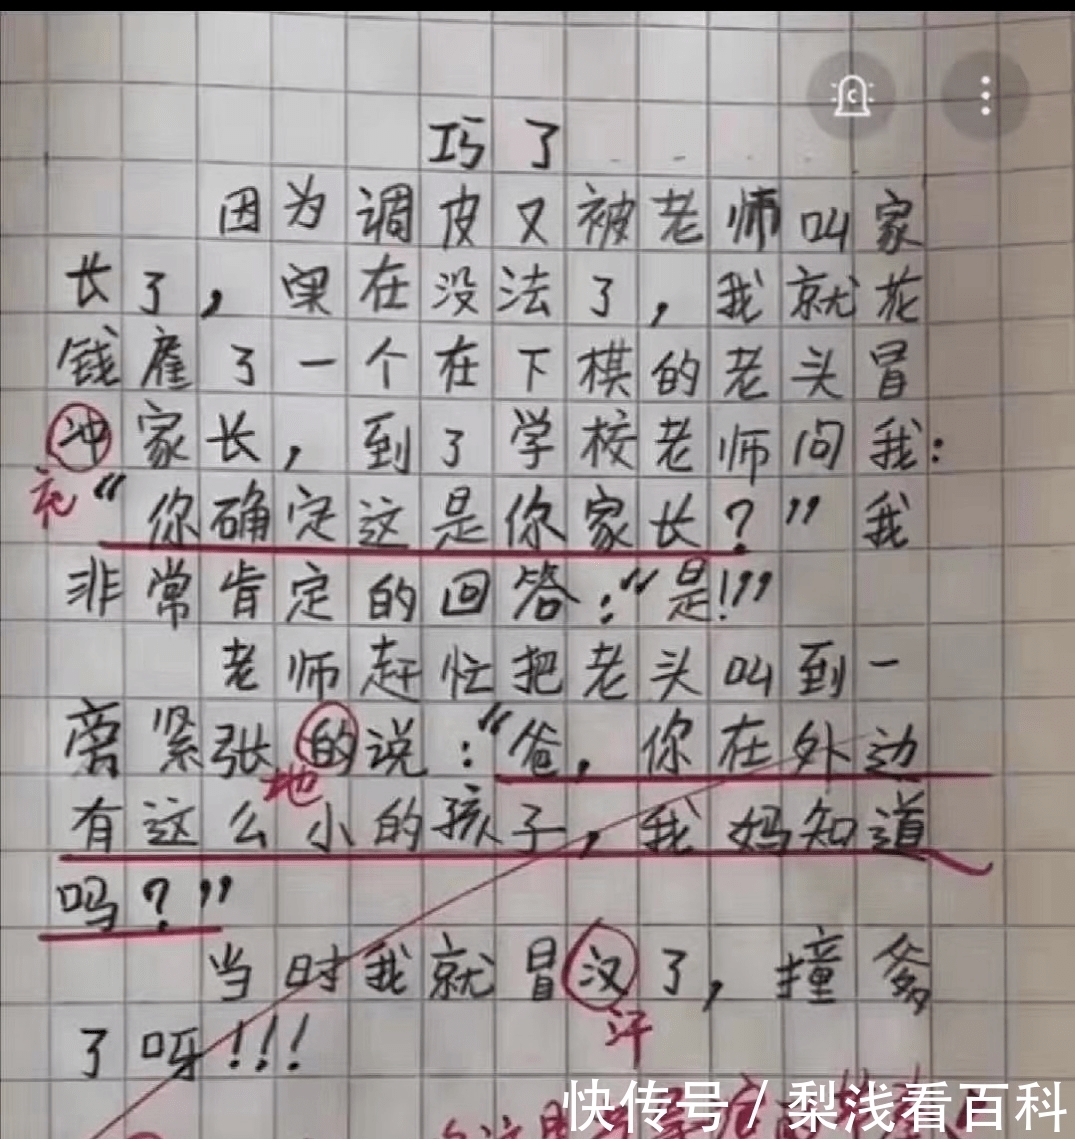 巧了
因为调皮又被老师叫家
长了，实在没法了，我就花
钱雇了一个在下棋的老头冒
冲家长，到了学校老师问我：
充
“你确定这是你家长？”我
非常肯定的回答：“是！”
老师赶忙把老头叫到一
旁紧张的说：“爸，你在外边
地
有这么小的孩子，我妈知道
吗？”
当时我就冒汉了，撞爹
汗
了呀！！！
快传号 / 梨浅看百科